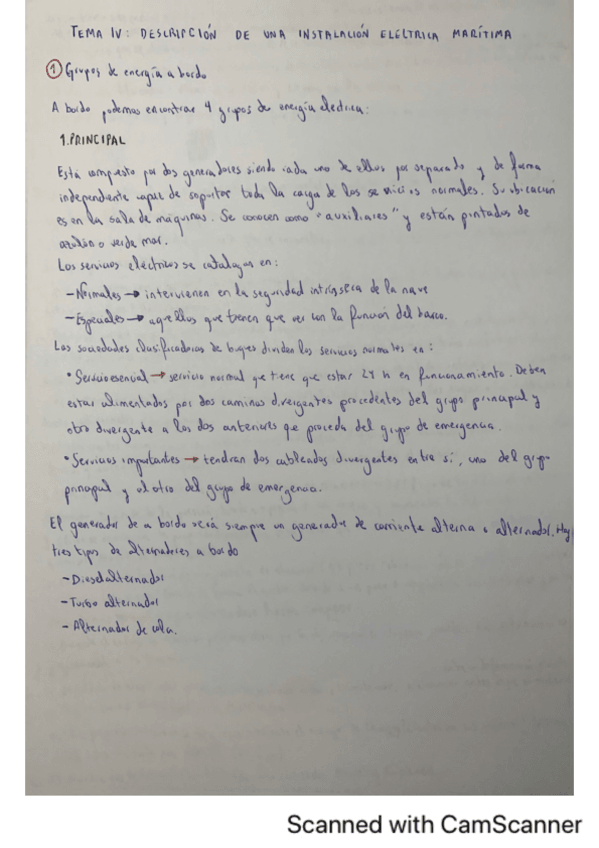 TEMA IV: DESCRIPCIÓN DE UNA INSTALACIÓN ELÉCTRICA MARÍTIMA
1 Grupos de energía a bordo
A bordo podemos encontrar 4 grupos de energía eléctrica:
1.PRINCIPAL
Está compuesto por dos generadores siendo cada uno de ellos por separado y de forma
independiente capaz de soportar toda la carga de los servicios normales. Su ubicación
es en la sala de máquinas. Se conocen como "auxiliares" y están pintados de
azulón o verde mar.
Los servicios eléctricos se catalogan en:
-Normales → intervienen en la seguridad intrínseca de la nave
-Especiales → aquellos que tienen que ver con la función del barco.
Las sociedades clasificadoras de buques dividen los servicios normales en:
• Servicio esencial → servicio normal que tiene que estar 24 h en funcionamiento. Deben
estar alimentados por dos caminos divergentes procedentes del grupo principal y
otro divergente a los dos anteriores que proceda del grupo de emergencia.
• Servicios importantes → tendran dos cableados divergentes entre sí, uno del grupo
principal y el otro del grupo de emergencia.
El generador de a bordo será siempre un generador de corriente alterna o alternador. Hay
tres tipos de alternadores a bordo
-Diesel alternador
-Turbo alternador
-Alternador de cola.
Scanned with CamScanner